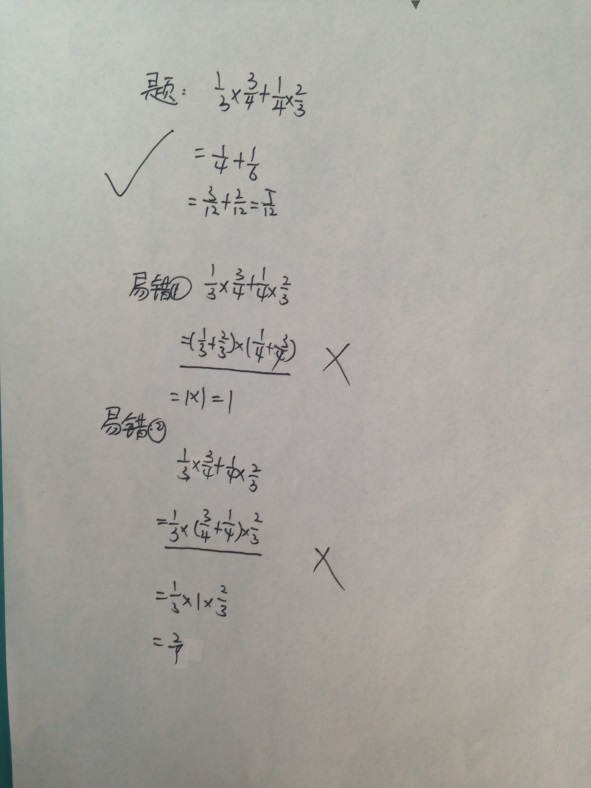 题: 1/3×3/4+1/4×2/3
=1/4+1/6
=3/12+2/12=5/12
易错① 1/3×3/4+1/4×2/3
=(1/3+2/3)×(1/4+3/4)
=1×1=1
易错②
1/3×3/4+1/4×2/3
=1/3×(3/4+1/4)×2/3
=1/3×1×2/3
=2/9